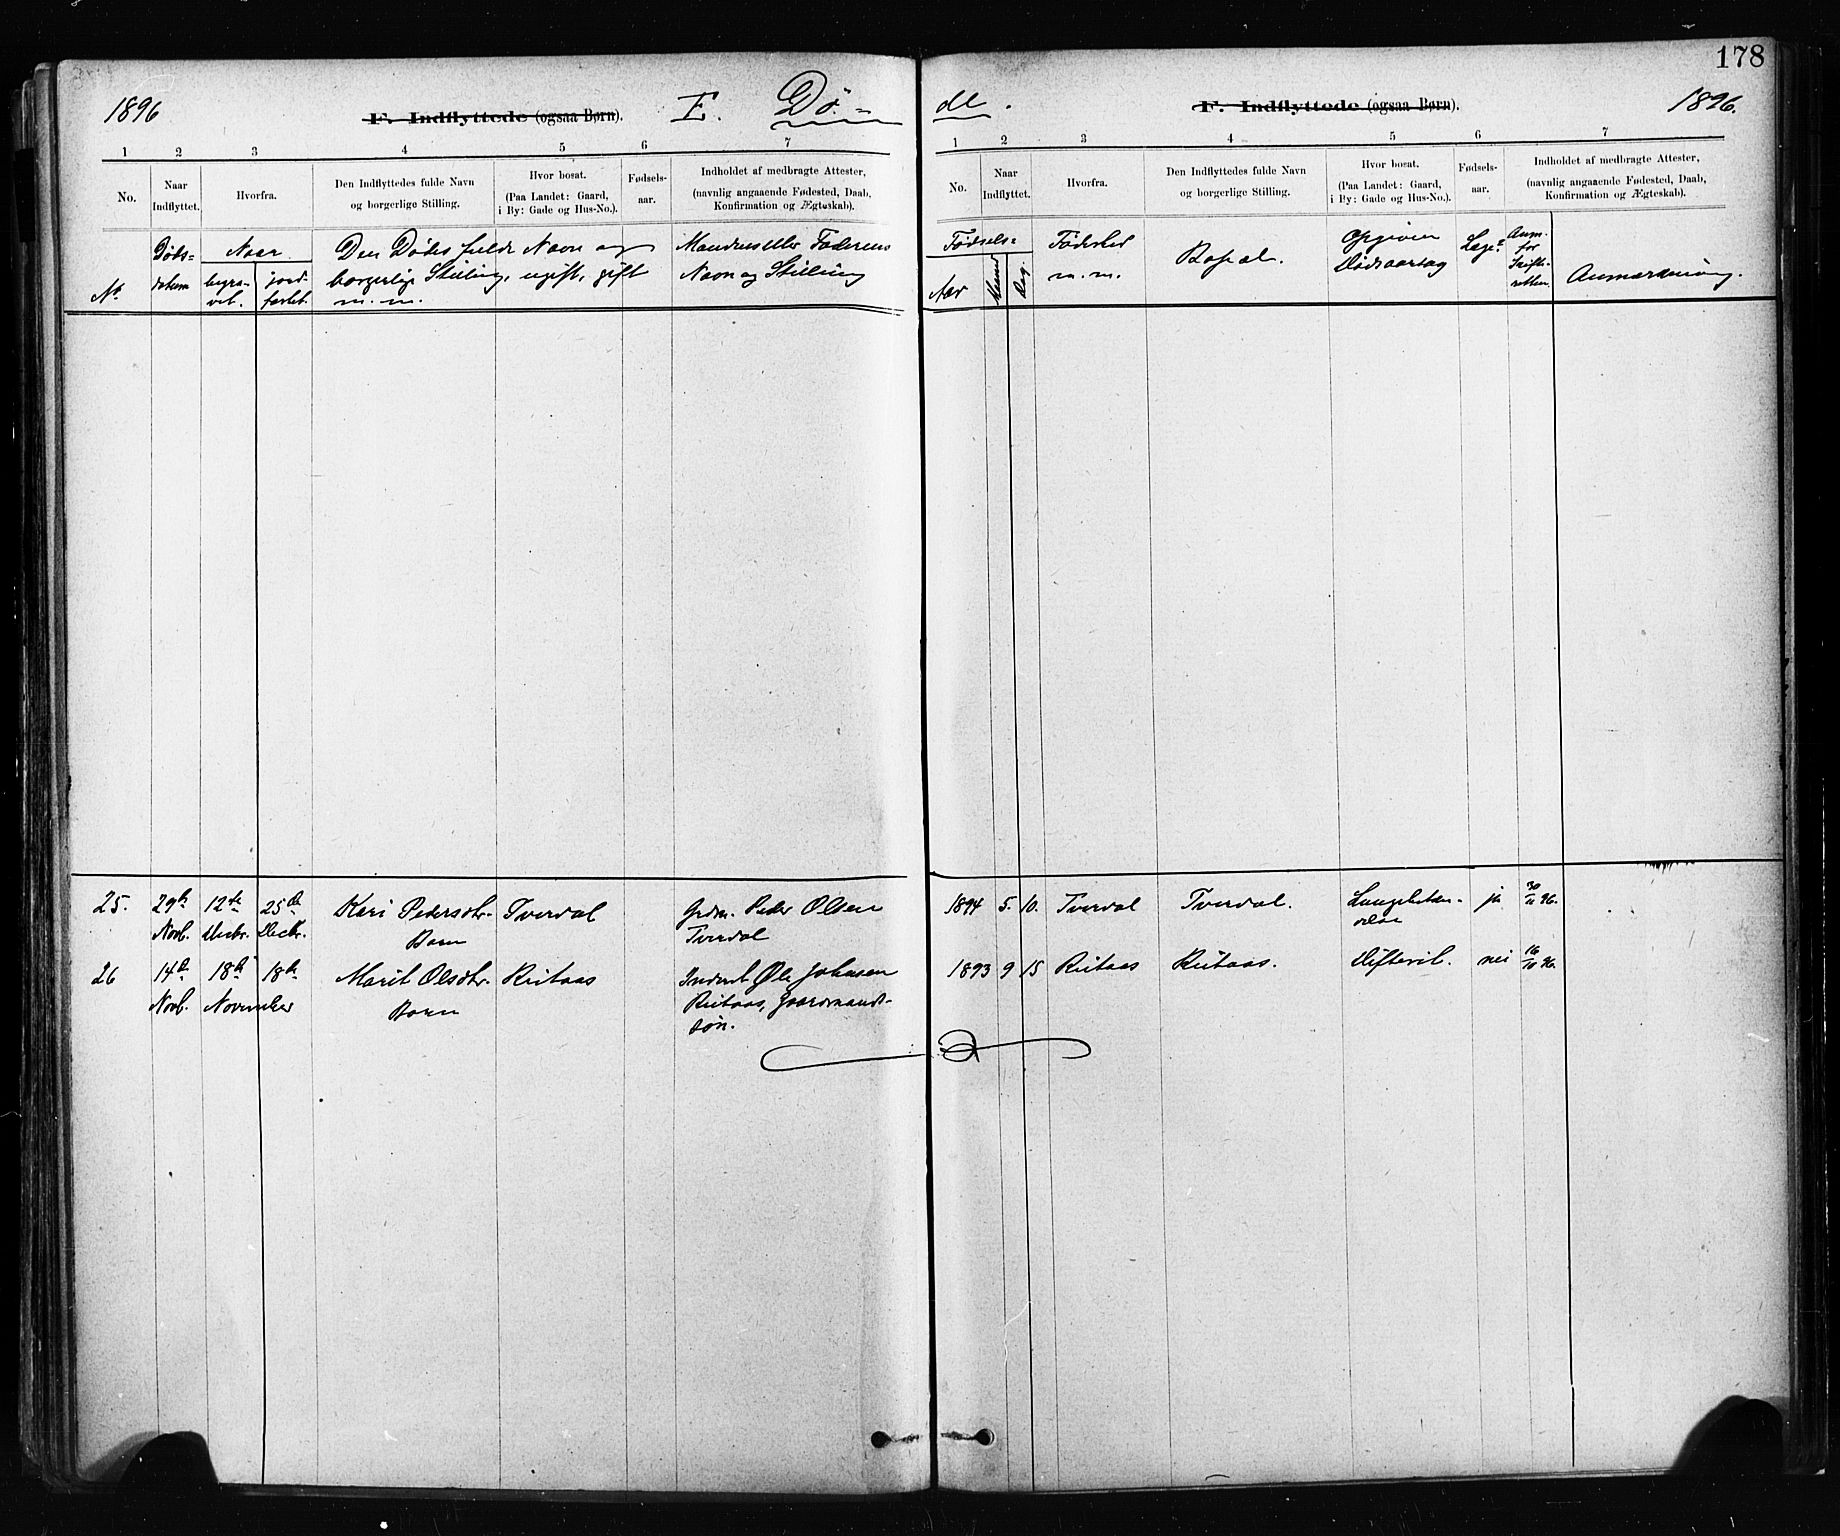 178
1896
F. Indflyttede (ogsaa Børn).
E. Dø=
de.
F. Indflyttede (ogsaa Børn).
1896.
1 2 3 4 5 6 7
No.
Naar
Indflyttet.
Hvorfra.
Den Indflyttedes fulde Navn
og borgerlige Stilling.
Hvor bosat.
(Paa Landet: Gaard,
i By: Gade og Hus-No.).
Fødsels-
aar.
Indholdet af medbragte Attester,
(navnlig angaaende Fødested, Daab,
Konfirmation og Ægteskab).
1 2 3 4 5 6 7
No.
Naar
Indflyttet.
Hvorfra.
Den Indflyttedes fulde Navn
og borgerlige Stilling.
Hvor bosat.
(Paa Landet: Gaard,
i By: Gade og Hus-No.).
Fødsels-
aar.
Indholdet af medbragte Attester,
(navnlig angaaende Fødested, Daab,
Konfirmation og Ægteskab).
Nr
Døds=
datum
Naar
begra-
vet.
jord-
fæstet.
Den Dødes fulde Navn og
borgerlige Stilling, ugift, gift
m. m.
Mandens eller Faderens
Navn og Stilling
Fødsels=
Aar
Maaned
Dag
Fødested
m. m.
Bopæl.
Opgiven
Dødsaarsag
Læge=
Anm.
for
Skifte-
retten.
Anmærkning.
25.
29de
Novb.
12te
Decbr.
25de
Decbr.
Kari Pedersdtr.
Barn
Tverdal
Grdm. Peder Olsen
Tverdal
1894 5. 10.
Tverdal
Tverdal.
ja
30/11 96.
26
14de
Novb.
18de
18de
November
Marit Olsdtr.
Barn
Riitaas
Inderst Ole Johnsen
Riitaas, Gaardmands-
søn.
1893 9 15
Riitaas
Riitaas.
Difterit.
nei
16/11 96.